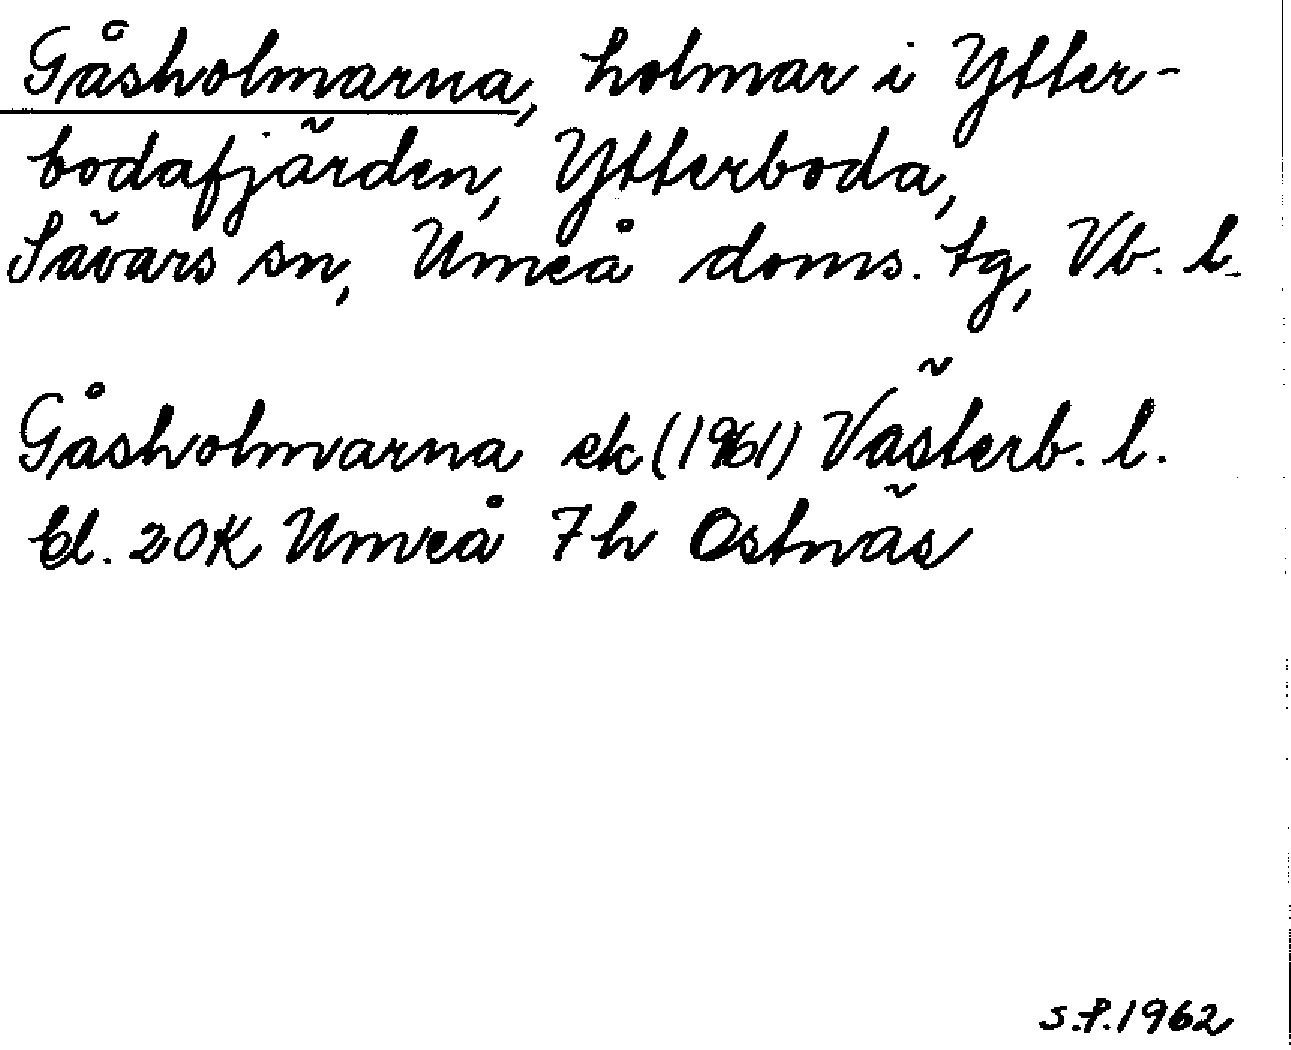 Gåsholmarna, holmar i Ytter-
bodafjärden, Ytterboda,
Sävars sn, Umeå doms. tg, Vb. l.
Gåsholmarna ek (1961) Västerb. l.
bl. 20K Umeå 7h Ostnäs
S.F. 1962